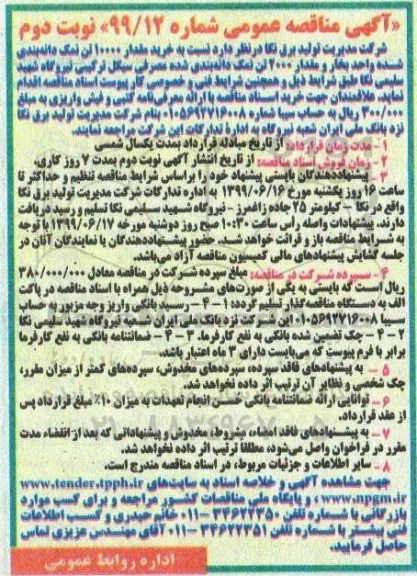 «آگهی مناقصه عمومی شماره ۹۹/۱۲» نوبت دوم
شرکت مدیریت تولید برق نکا درنظر دارد نسبت به خرید مقدار ۱۰۰۰۰ لن نمک دانه‌بندی
شده واحد بخار و مقدار ۲۰۰۰ لن نمک دانه‌بندی شده مصرفی سیکل ترکیبی نیروگاه شهید
سلیمی نکا طبق شرایط ذیل و همچنین شرایط فنی و خصوصی کار پیوست اسناد مناقصه اقدام
نماید. علاقمندان جهت خرید اسناد مناقصه با ارائه معرفی‌نامه کتبی و فیش واریزی به مبلغ
۳۰۰/۰۰۰ ریال به حساب سیبا شماره ۰۱۰۵۶۹۲۷۱۶۰۰۸ بنام شرکت مدیریت تولید برق نکا
نزد بانک ملی ایران شعبه نیروگاه به اداره تدارکات این شرکت مراجعه نمایند.
۱ - مدت زمان قرارداد: از تاریخ مبادله قرارداد بمدت یکسال شمسی
۲ - زمان فروش اسناد مناقصه: از تاریخ انتشار آگهی نوبت دوم بمدت ۷ روز کاری.
۳ - پیشنهاددهندگان بایستی پیشنهاد خود را براساس شرایط مناقصه تنظیم و حداکثر تا
ساعت ۱۶ روز یکشنبه مورخ ۱۳۹۹/۰۶/۱۶ به اداره تدارکات شرکت مدیریت تولید برق نکا
واقع در نکا - کیلومتر ۲۵ جاده زاغمرز - نیروگاه شهید سلیمی نکا تسلیم و رسید دریافت
دارند. پیشنهادات واصله راس ساعت ۱۰:۳۰ صبح روز دوشنبه مورخه ۱۳۹۹/۰۶/۱۷ با توجه
به شرایط مناقصه باز و قرائت خواهد شد. حضور پیشنهاددهندگان یا نمایندگان آنان در
جلسه گشایش پیشنهادهای مالی کمیسیون مناقصه آزاد می‌باشد.
۴ - سپرده شرکت در مناقصه: مبلغ سپرده شرکت در مناقصه معادل ۳۸۰/۰۰۰/۰۰۰
ریال است که بایستی به یکی از صورت‌های مشروحه ذیل همراه با اسناد مناقصه در پاکت
الف به دستگاه مناقصه‌گذار تسلیم گردد: ۱ - ۴ - رسید بانکی واریز وجه مزبور به حساب
سیبا ۰۱۰۵۶۹۲۷۱۶۰۰۸ این شرکت نزد بانک ملی ایران شعبه نیروگاه شهید سلیمی نکا
۲ - ۴ - چک تضمین شده بانکی به نفع کارفرما. ۳ - ۴ - ضمانتنامه بانکی به نفع کارفرما
برابر با فرم پیوست که می‌بایست دارای ۳ ماه اعتبار باشد.
۵ - به پیشنهادهای فاقد سپرده، سپرده‌های مخدوش، سپرده‌های کمتر از میزان مقرر،
چک شخصی و نظایر آن ترتیب اثر داده نخواهد شد.
۶ - توانایی ارائه ضمانتنامه بانکی حسن انجام تعهدات به میزان ۱۰% مبلغ قرارداد پس
از عقد قرارداد.
۷ - به پیشنهادهای فاقد امضاء، مشروط، مخدوش و پیشنهاداتی که بعد از انقضاء مدت
مقرر در فراخوان واصل می‌شود، مطلقا ترتیب اثر داده نخواهد شد.
۸ - سایر اطلاعات و جزئیات مربوط، در اسناد مناقصه مندرج است.
جهت مشاهده آگهی و خلاصه اسناد به سایت‌های www.tender.tpph.ir
www.npgm.ir، و پایگاه ملی مناقصات کشور مراجعه و برای کسب موارد
بازرگانی با شماره تلفن ۳۴۶۲۲۳۵۰ - ۰۱۱ خانم حیدری و کسب اطلاعات
فنی بیشتر با شماره تلفن ۳۴۶۲۲۳۵۱ - ۰۱۱ آقای مهندس عزیزی تماس
حاصل فرمایید.
اداره روابط عمومی